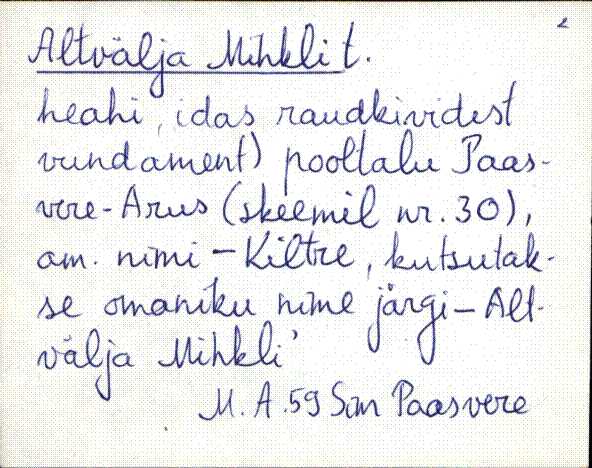 2
Altvälja Mihkli t.
heahi, idas raudkividest
vundament) pooltalu Paas-
vere-Arus (skeemil nr. 30),
am. nimi - Kiltre, kutsutak-
se omaniku nime järgi - Alt-
välja Mihkli'
M. A. 59 Sim Paasvere